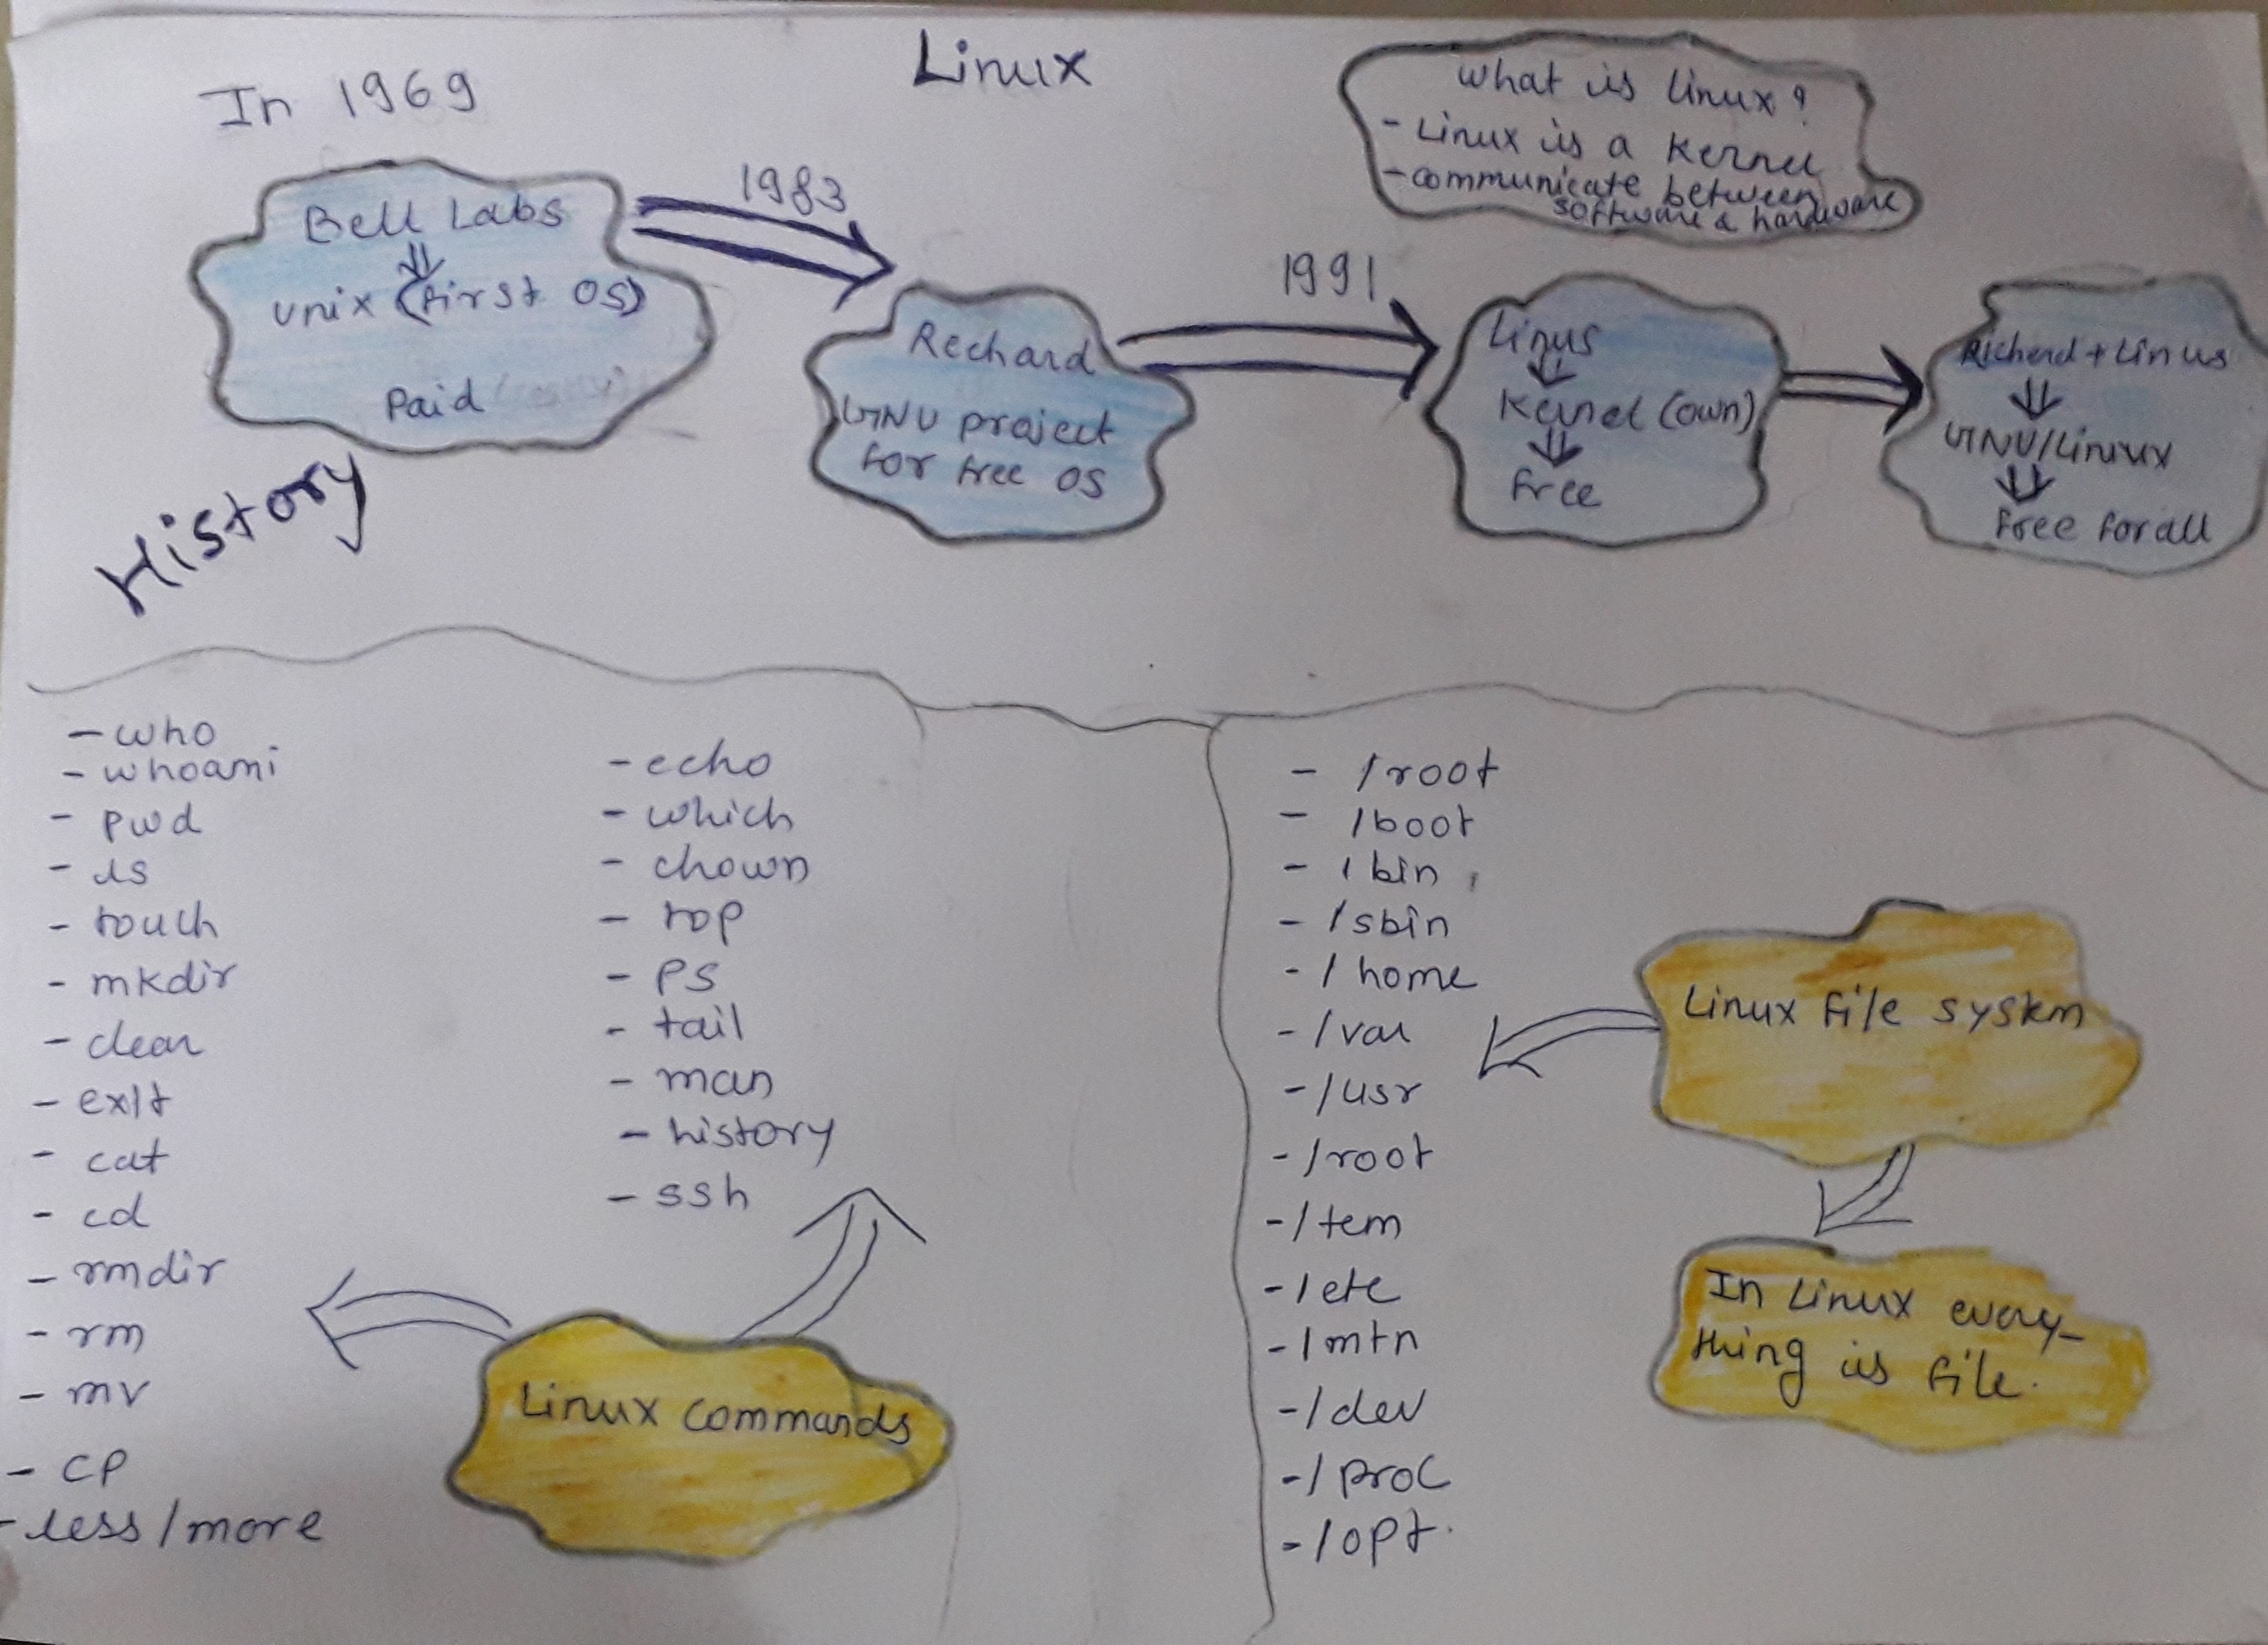 Linux
In 1969
What is Linux?
- Linux is a Kernel
- communicate between
software & hardware
1983
Bell Labs
⇓
Unix (first OS)
Paid
1991
Rechard
GNU project
for free OS
Linus
⇓
Kernel (own)
⇓
free
Richerd + Linus
⇓
GNU/Linux
⇓
free for all
History
- who
- whoami
- pwd
- ls
- touch
- mkdir
- clear
- exit
- cat
- cd
- rmdir
- rm
- mv
- cp
- less/more
- echo
- which
- chown
- top
- ps
- tail
- man
- history
- ssh
Linux commands
- /root
- /boot
- /bin
- /sbin
- /home
- /var
- /usr
- /root
- /tem
- /etc
- /mtn
- /dev
- /proc
- /opt.
Linux file system
In Linux every-
thing is file.